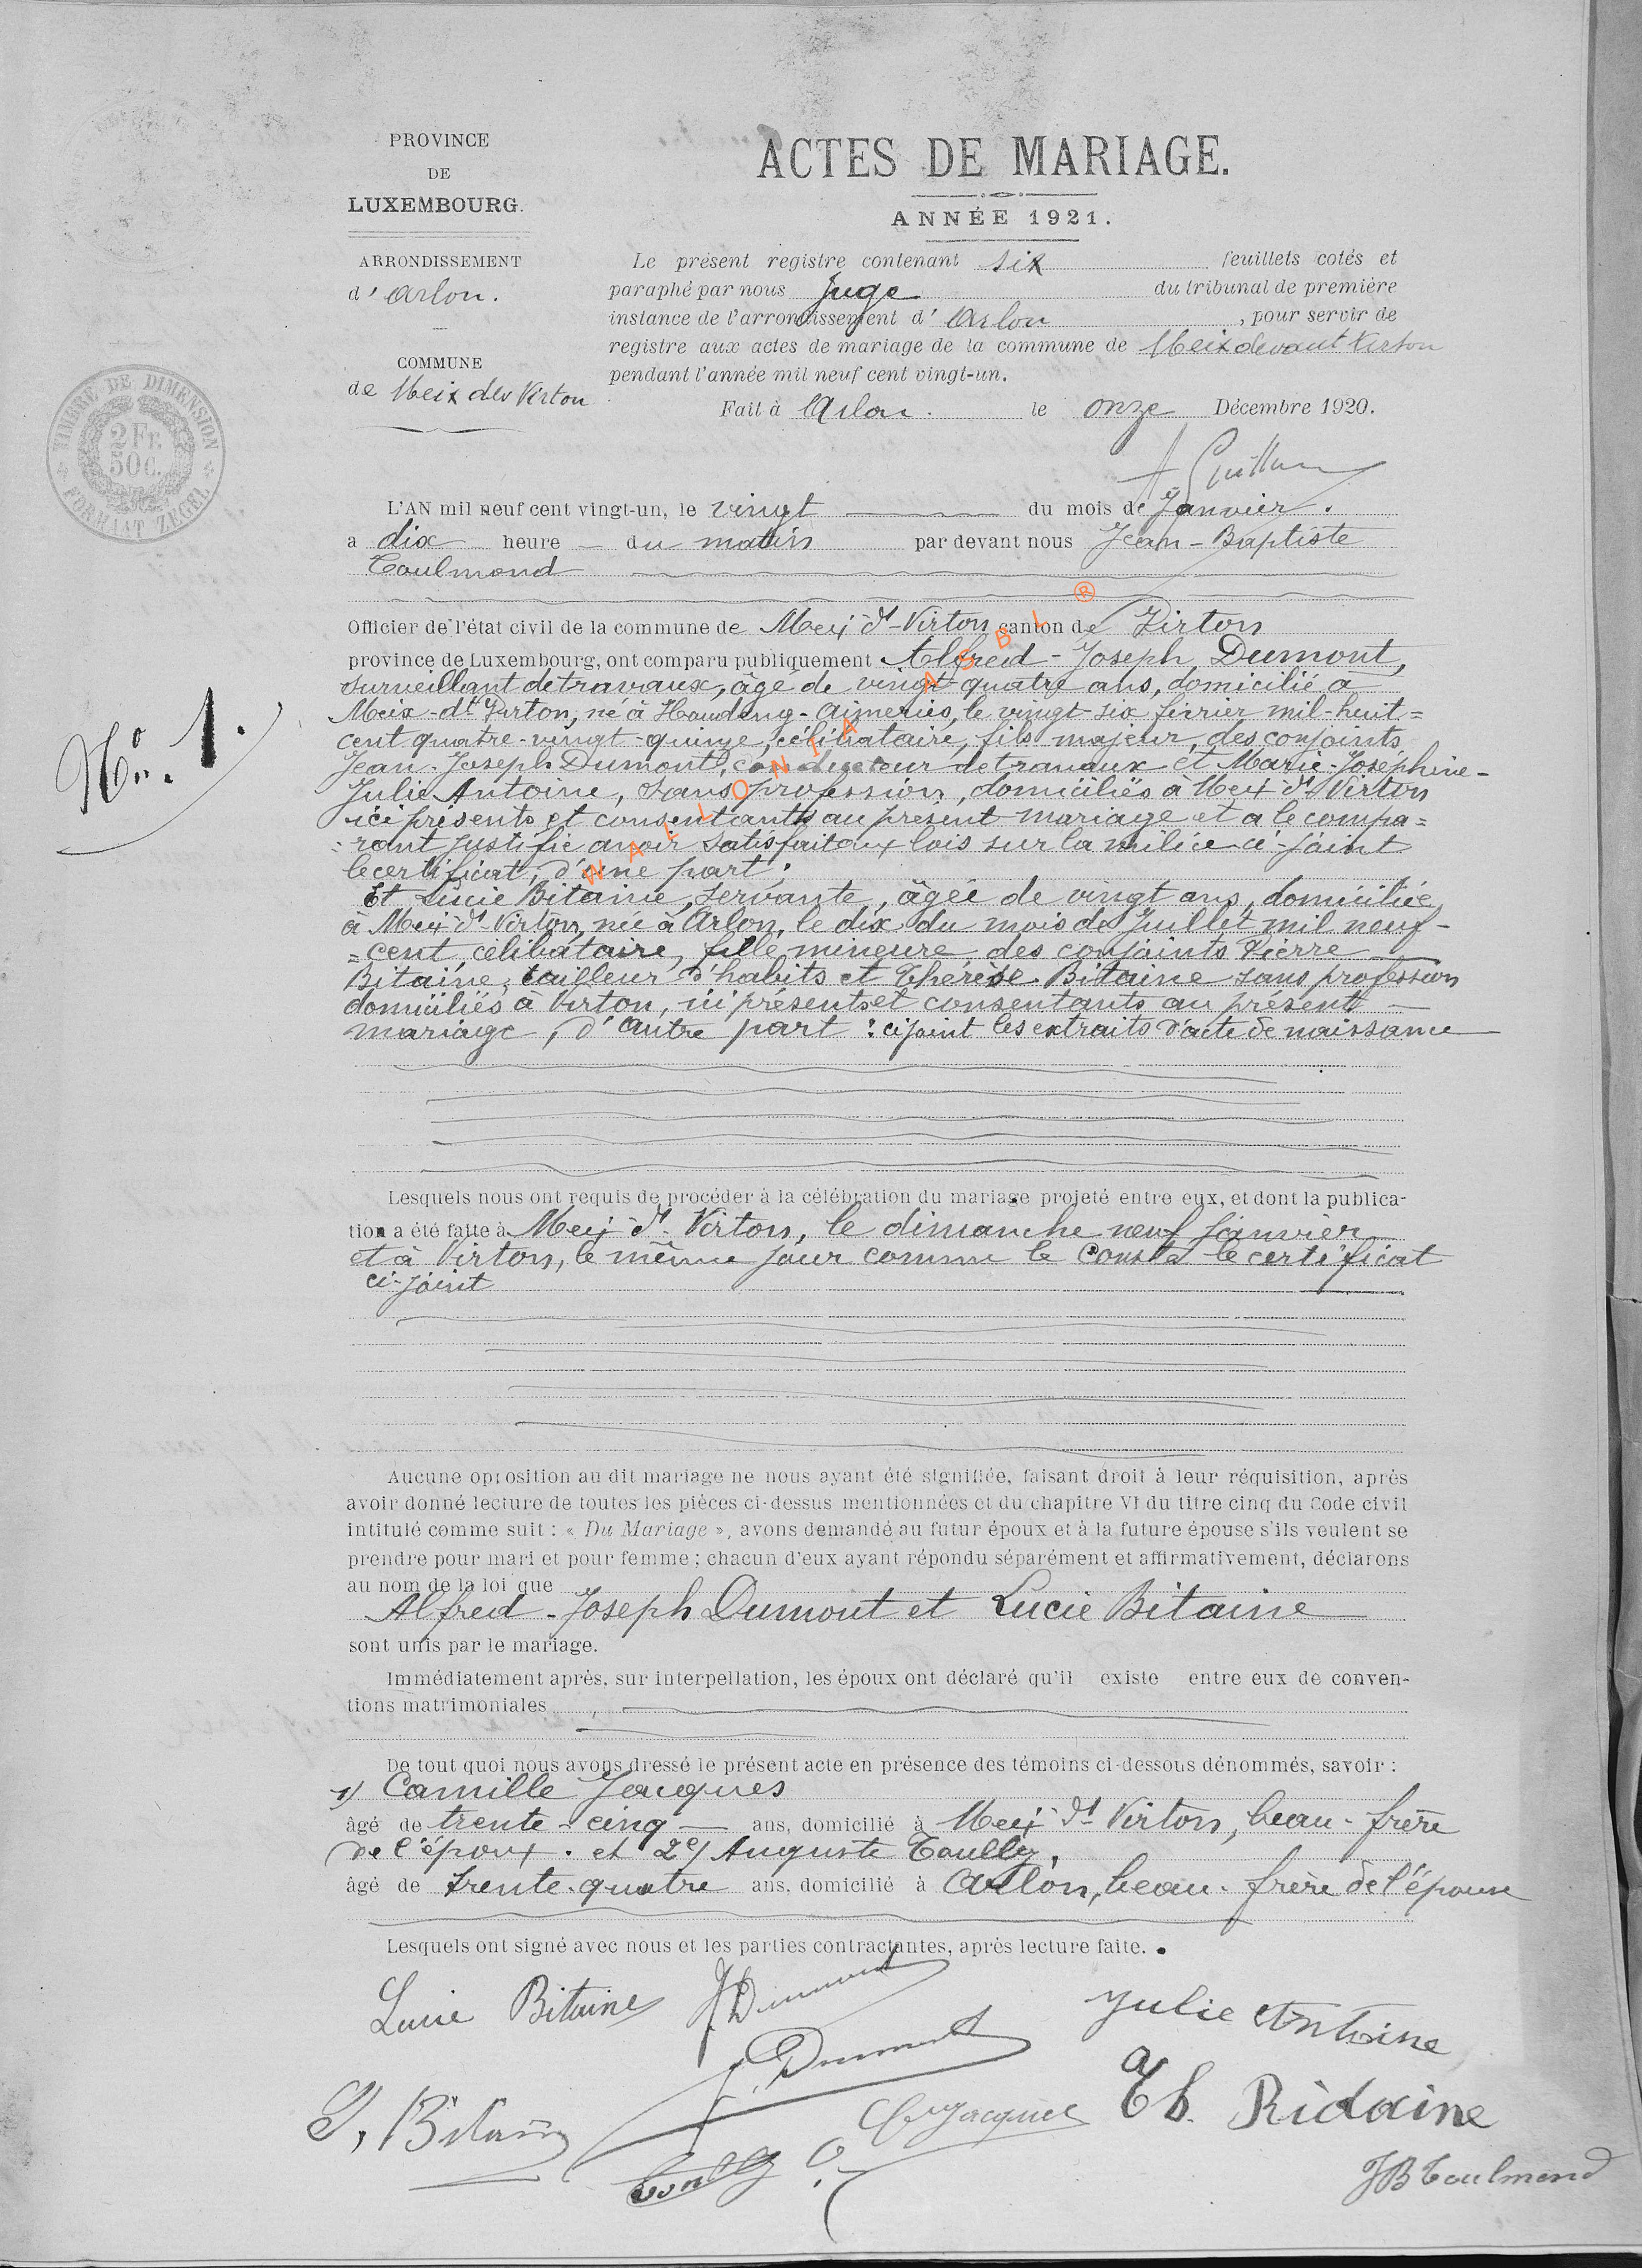 PROVINCE
DE
LUXEMBOURG.
ARRONDISSEMENT
d'Arlon.
COMMUNE
de Meix dev Virton
TIMBRE DE DIMENSION
2 Fr.
50 C.
FORMAAT ZEGEL
ACTES DE MARIAGE.
ANNÉE 1921.
Le présent registre contenant six feuillets cotés et
paraphé par nous Juge du tribunal de première
instance de l'arrondissement d'Arlon, pour servir de
registre aux actes de mariage de la commune de Meix devant Virton
pendant l'année mil neuf cent vingt-un.
Fait à Arlon. le onze Décembre 1920.
No. 1.
L'AN mil neuf cent vingt-un, le vingt du mois de Janvier.
a dix heure du matin par devant nous Jean-Baptiste
Toulmond
Officier de l'état civil de la commune de Meix dt-Virton canton de Virton
province de Luxembourg, ont comparu publiquement Alfred-Joseph Dumont,
surveillant de travaux, âgé de vingt-quatre ans, domicilié à
Meix-dt Virton, né à Houdeng-Aimeries, le vingt-six février mil-huit=
cent quatre-vingt-quinze, célibataire, fils majeur, des conjoints
Jean-Joseph Dumont, conducteur de travaux et Marie-Joséphine-
Julie Antoine, sans profession, domiciliés à Meix dt Virton
ici présents et consentants au présent mariage et a le compa=
=rant justifié avoir satisfait aux lois sur la milice ci-joint
le certificat, d'une part;
Et Lucie Bitaine, servante, âgée de vingt ans, domiciliée
à Meix dt-Virton, née à Arlon, le dix du mois de Juillet mil neuf-
=cent, célibataire, fille mineure des conjoints Pierre
Bitaine, tailleur d'habits et Thérèse Bitaine sans profession
domiciliés à Virton, ici présents et consentants au présent
mariage, d'autre part: ci joint les extraits d'acte de naissance
WALLONIA ASBL ®
Lesquels nous ont requis de procéder à la célébration du mariage projeté entre eux, et dont la publica-
tion a été faite à Meix dt-Virton, le dimanche neuf janvier
et à Virton, le même jour comme le conste le certificat
ci-joint
Aucune opposition au dit mariage ne nous ayant été signifiée, faisant droit à leur réquisition, après
avoir donné lecture de toutes les pièces ci-dessus mentionnées et du chapitre VI du titre cinq du Code civil
intitulé comme suit : « Du Mariage », avons demandé au futur époux et à la future épouse s'ils veulent se
prendre pour mari et pour femme ; chacun d'eux ayant répondu séparément et affirmativement, déclarons
au nom de la loi que
Alfred-Joseph Dumont et Lucie Bitaine
sont unis par le mariage.
Immédiatement après, sur interpellation, les époux ont déclaré qu'il existe entre eux de conven-
tions matrimoniales
De tout quoi nous avons dressé le présent acte en présence des témoins ci-dessous dénommés, savoir :
1) Camille Jacques
âgé de trente-cinq ans, domicilié à Meix dt Virton, beau-frère
de l'époux. et 2e/ Auguste Toully,
âgé de trente-quatre ans, domicilié à Arlon, beau-frère de l'épouse
Lesquels ont signé avec nous et les parties contractantes, après lecture faite.
Lucie Bitaine Dumont Julie Antoine
J. Dumont
P. Bitaine Jacques Th. Ridaine
JB Toulmond